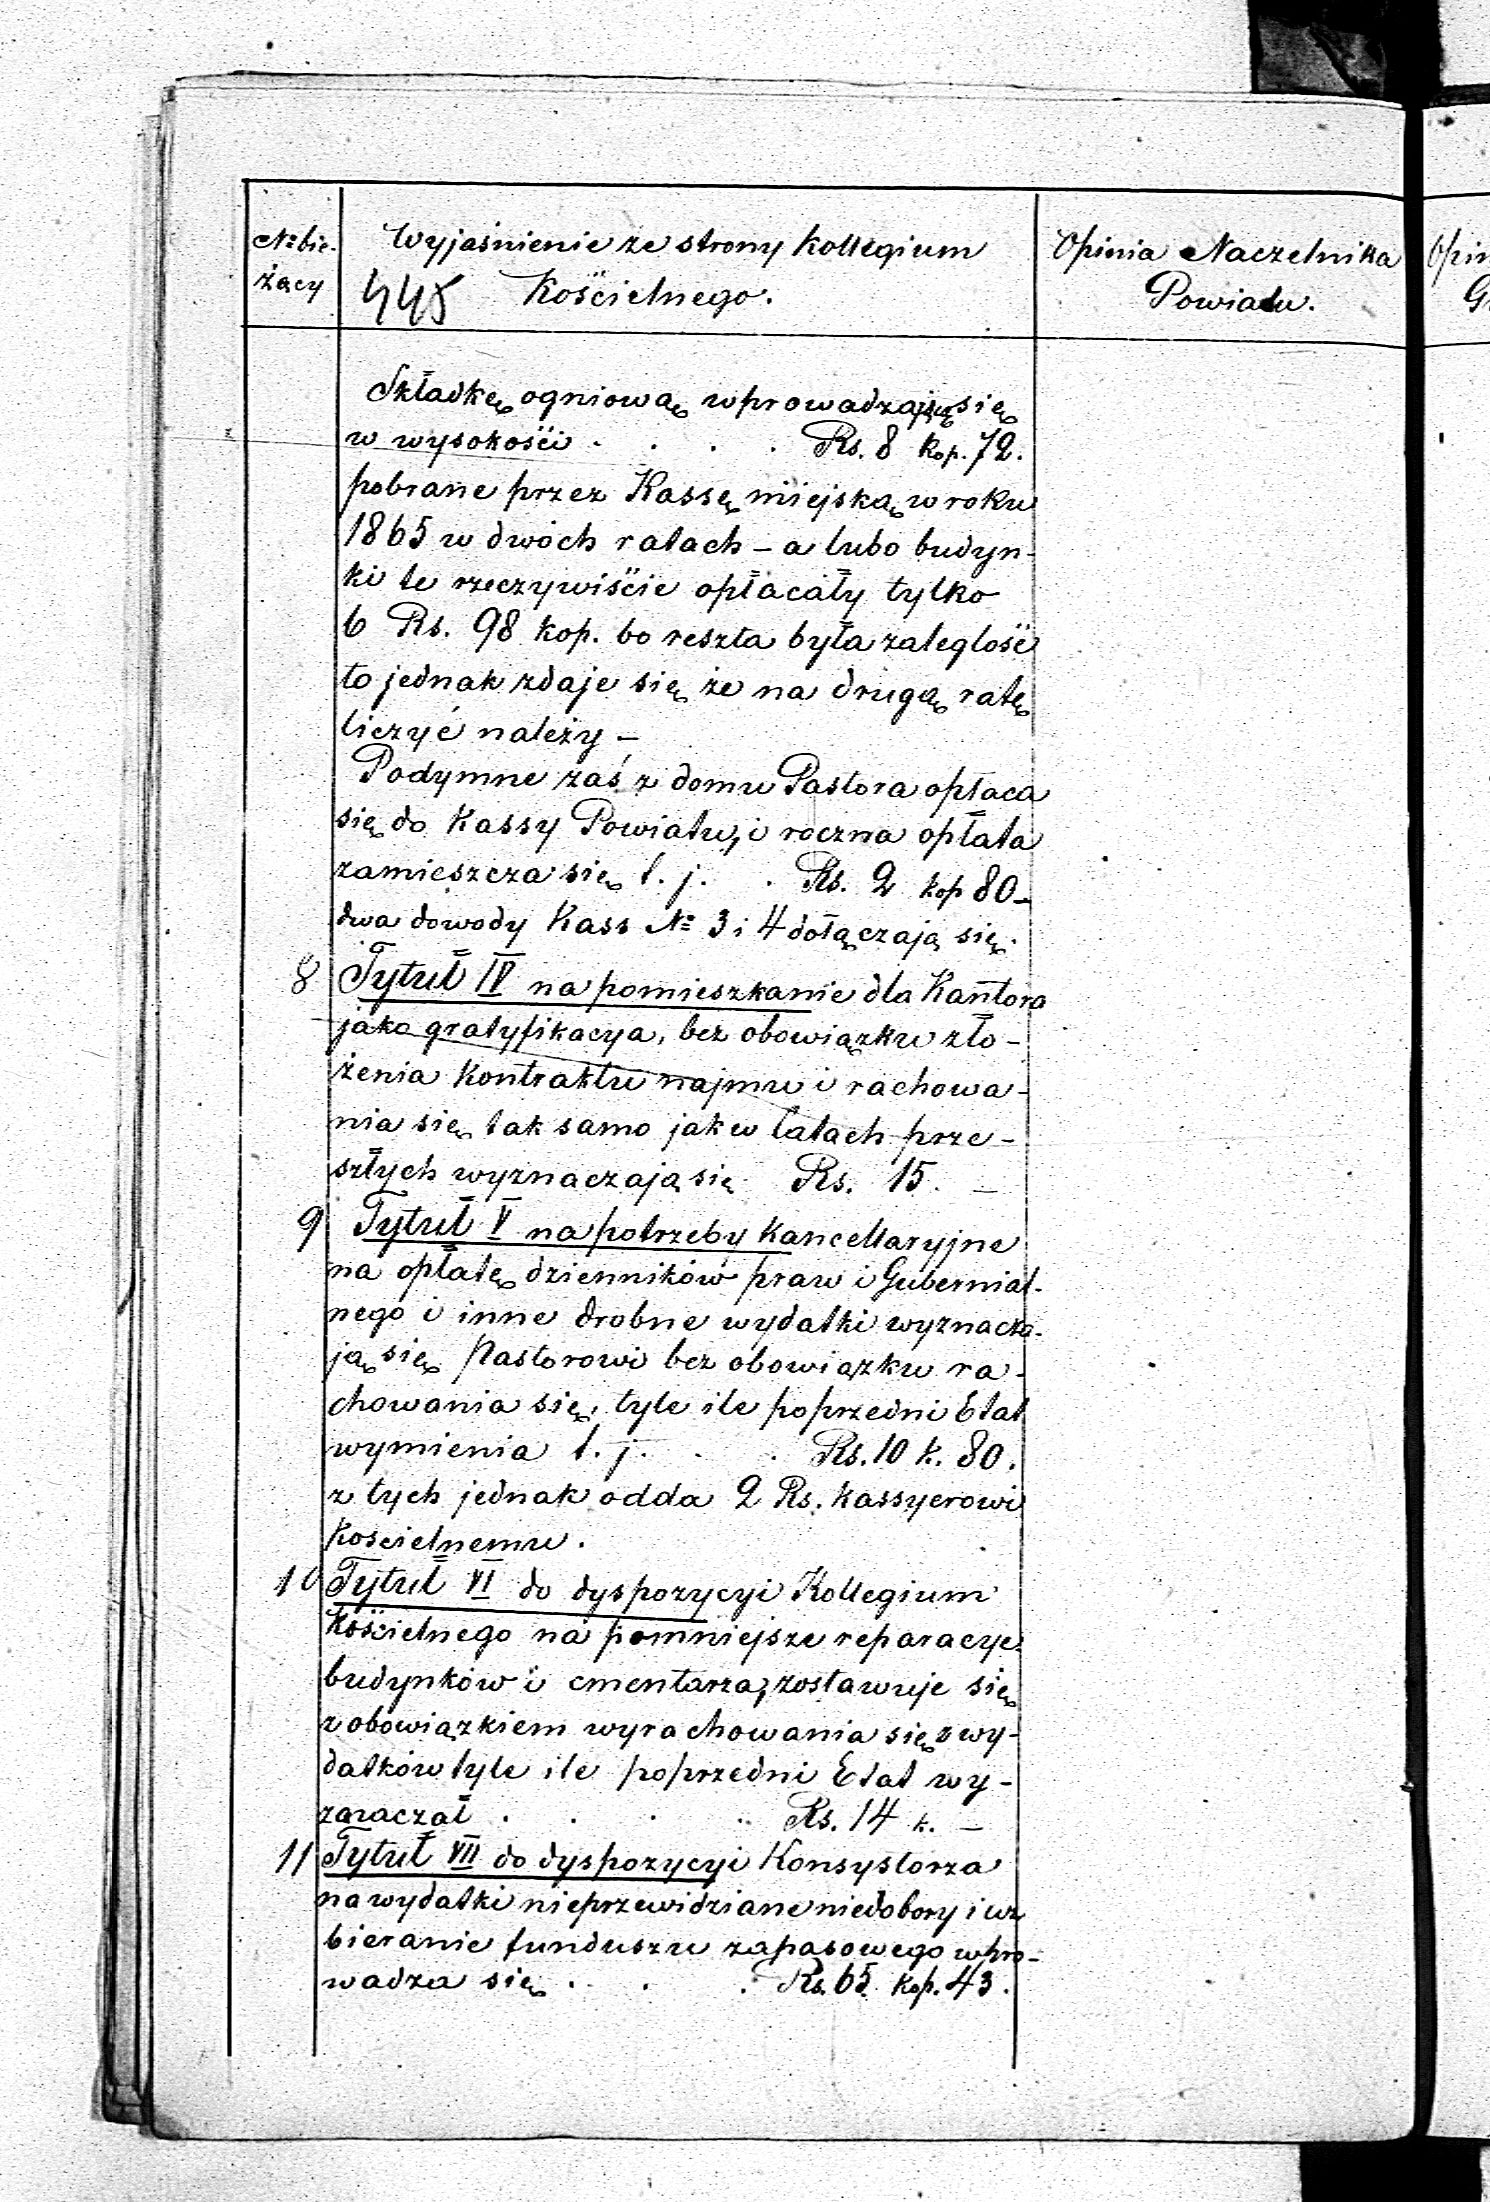 № bie-
żący
Wyjaśnienie ze strony Kollegium
Kościelnego.
445
Opinia Naczelnika
Powiatu.
Opin
G
Składkę ogniową wprowadzają się
w wysokości . . . . Rs. 8 kop. 72.
pobrane przez Kassę miejską w roku
1865 w dwóch ratach – a lubo budyn-
ki te rzeczywiście opłacały tylko
6 Rs. 98 kop. bo reszta była zaległość
to jednak zdaje się że na drugą ratę
liczyć należy –
Podymne zaś z domu Pastora opłaca
się do Kassy Powiatu, i roczna opłata
zamieszcza się t. j. . Rs. 2 kop 80 –
dwa dowody Kass № 3 i 4 dołączają się.
8 Tytuł IV na pomieszkanie dla Kantora
jako gratyfikacya, bez obowiązku zło-
żenia Kontraktu najmu i rachowa-
nia się tak samo jak w latach prze-
szłych wyznaczają się Rs. 15. –
9 Tytuł V na potrzeby Kancellaryjne
na opłatę dzienników praw i Gubernial-
nego i inne drobne wydatki wyznacza-
ją się Pastorowi bez obowiązku ra-
chowania się, tyle ile poprzedni Etat
wymienia t. j. . . Rs. 10 k. 80.
z tych jednak odda 2 Rs. kassyerowi
Koscielnemu.
10 Tytuł VI do dyspozycyi Kollegium
Kościelnego na pomniejsze reparacye
budynków i cmentarza, zostawuje się
z obowiązkiem wyrachowania się z wy-
datków tyle ile poprzedni Etat wy-
znaczał . . . . Rs. 14 k. –
11 Tytuł VII do dyspozycyi Konsystorza
na wydatki nieprzewidziane niedobory i uz
bieranie funduszu zapasowego wpro-
wadza się . . . Rs. 65 kop. 43.